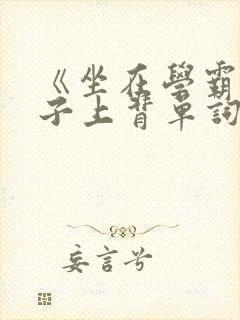 《坐在學霸
子上背單詞
妄言兮